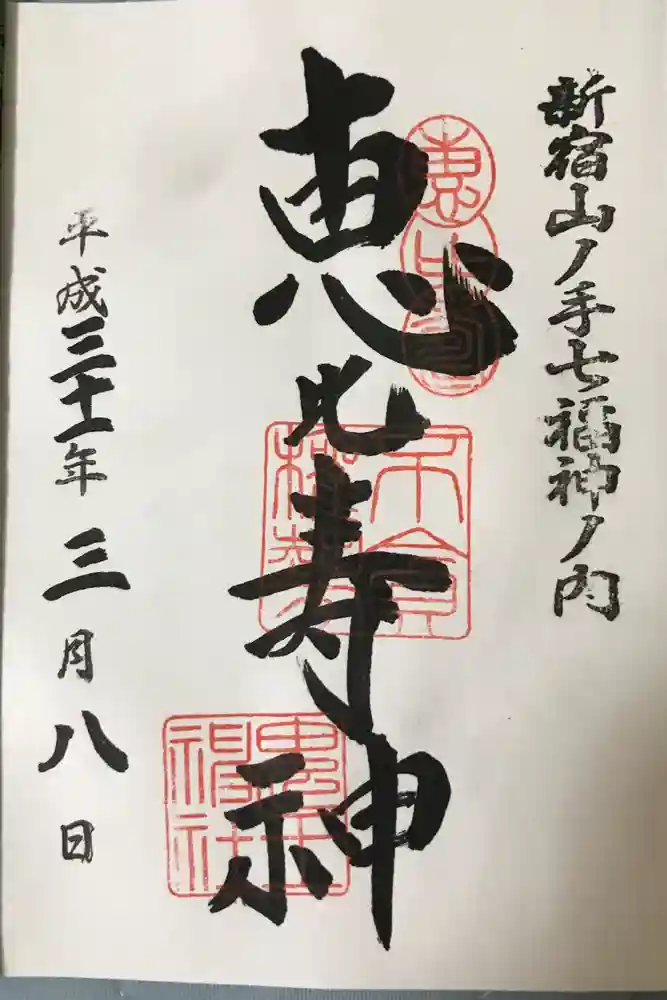 新宿山ノ手七福神ノ内
恵比寿神
平成三十一年三月八日